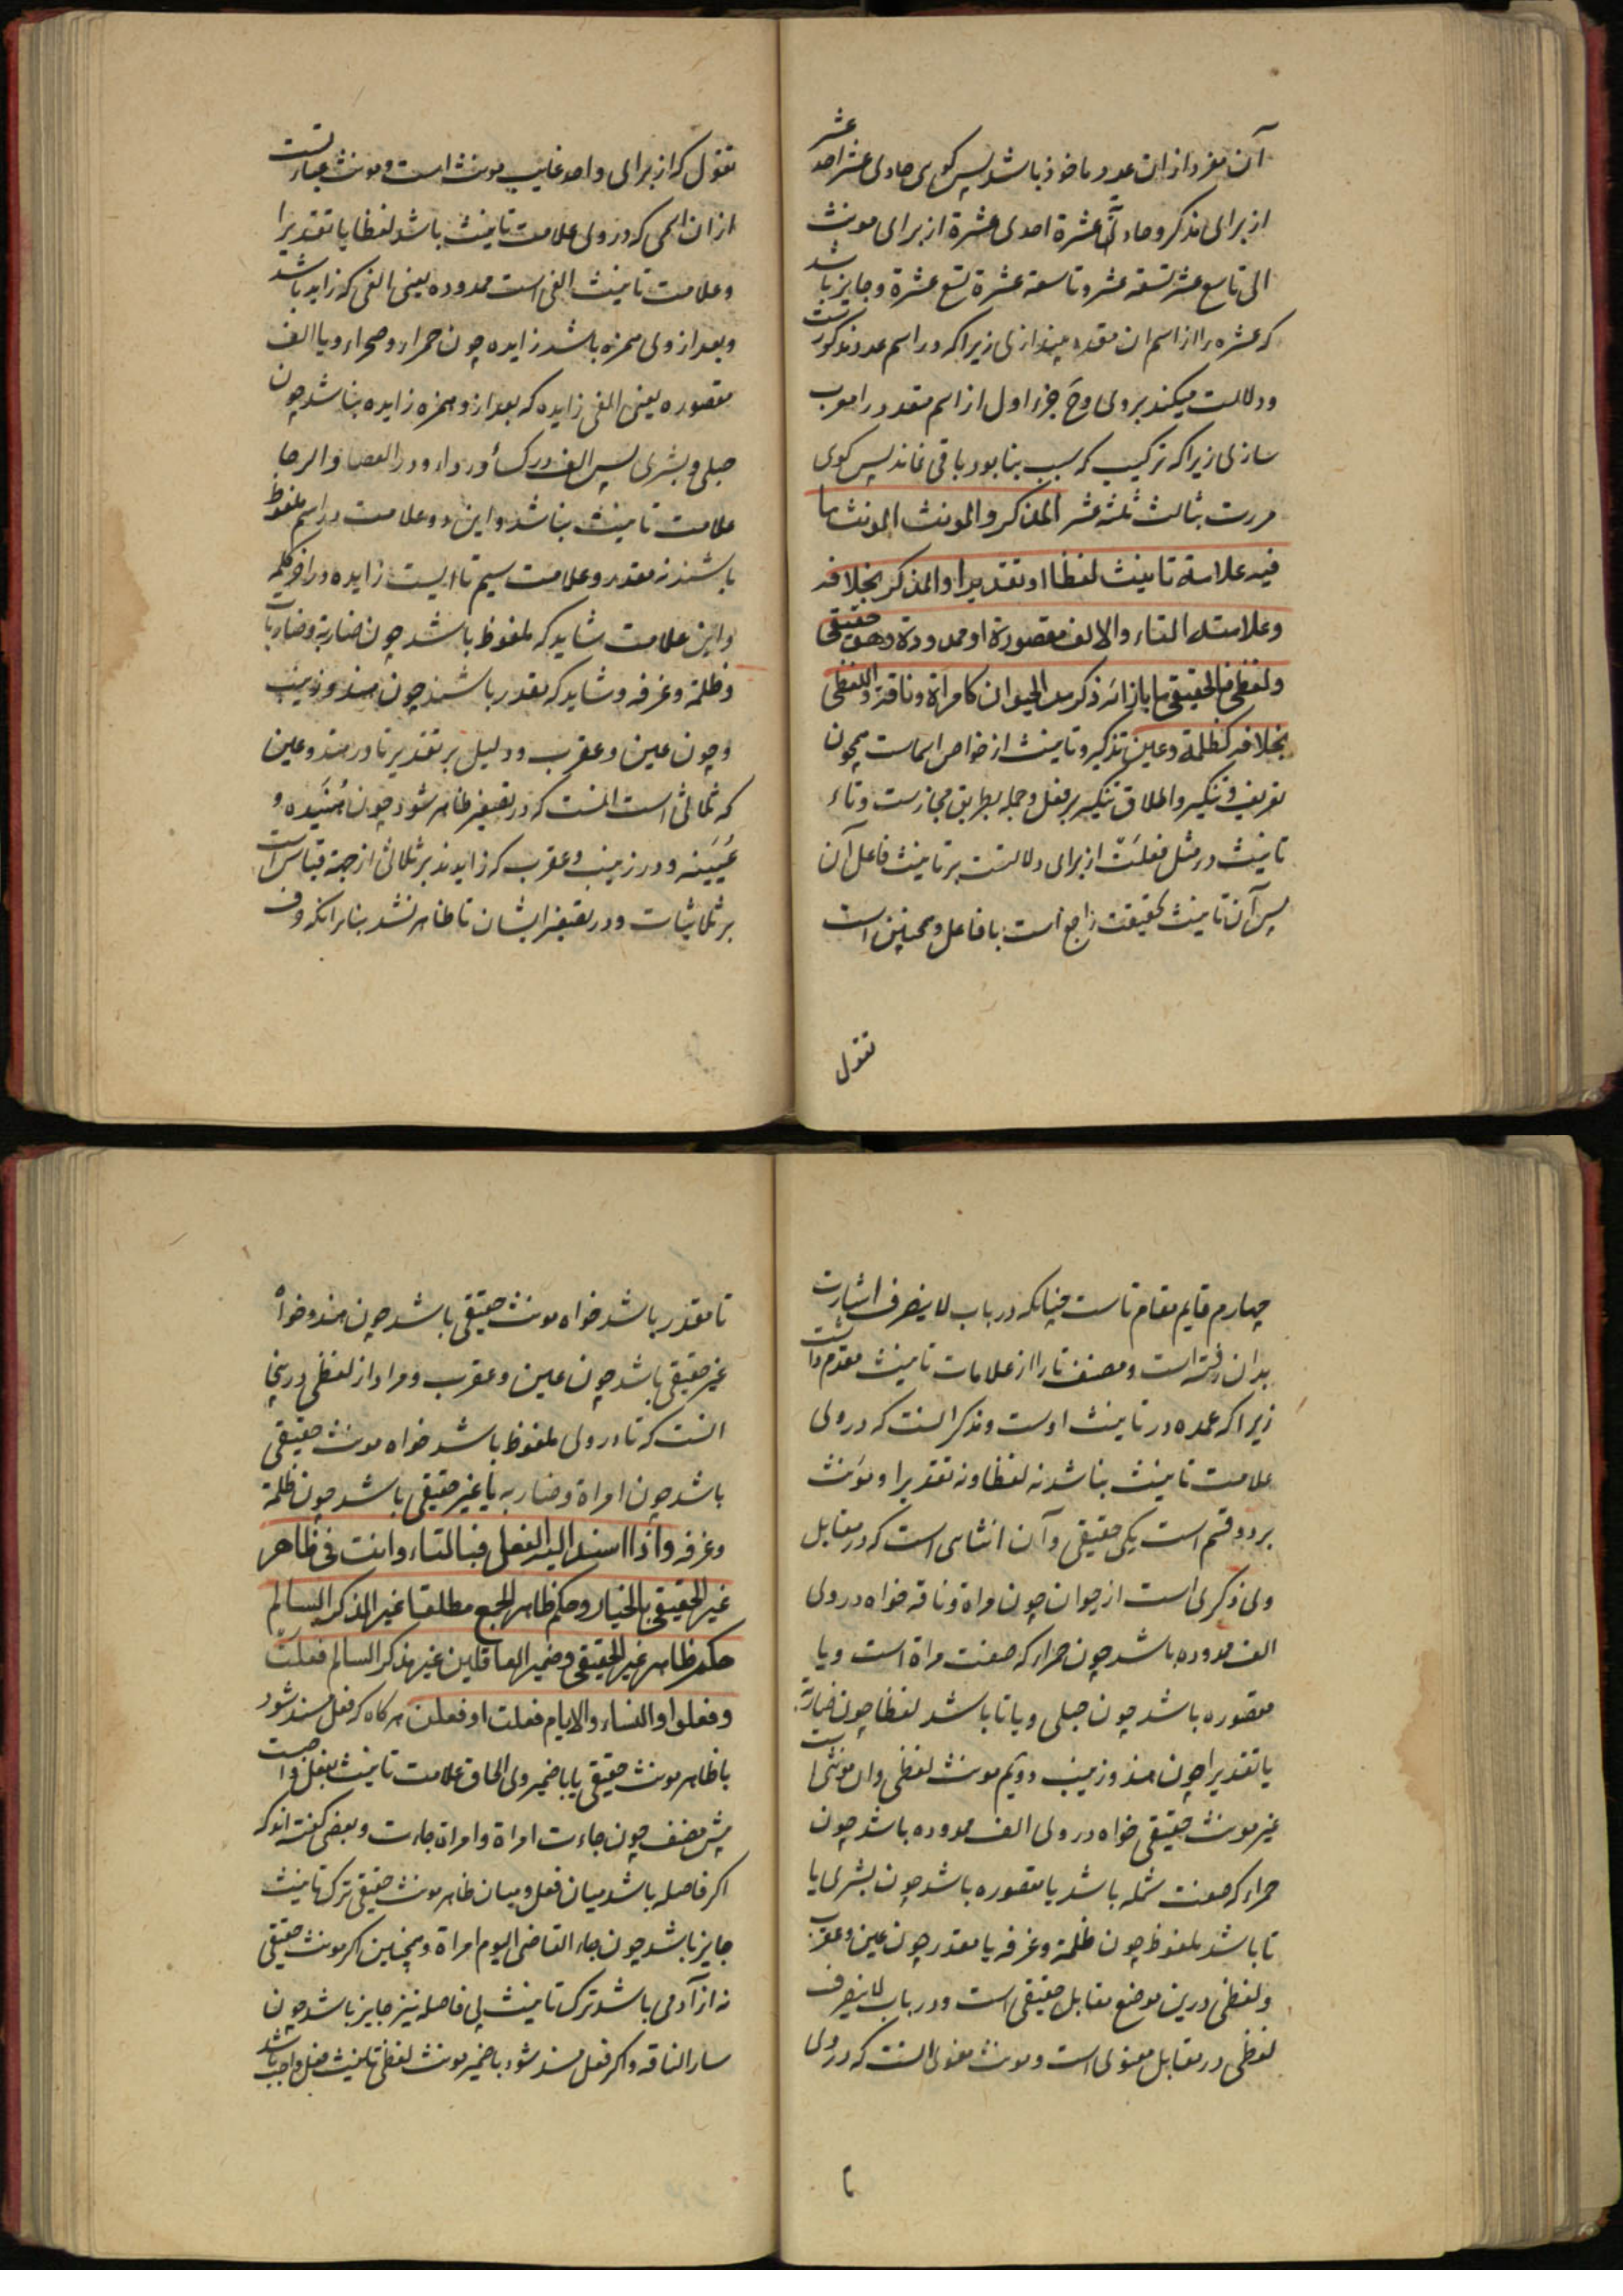 آن مفرد ازان عدد ماخوذ باشد پس کوی حادی عشر احد عشر
از برای مذکر و حادیة عشرة احدی عشرة از برای مونث
الی تاسع عشر تسعة عشر و تاسعة عشرة تسع عشرة و جایز باشد
که عشره را از اسم ان مقدم بیندازی زیراکه در اسم عدد مذکورست
و دلالت میکند بر وی وح جزء اول از اسم متعدد را معرب
سازی زیراکه ترکیب که سبب بنا بود باقی نماند پس کوی
مررت بثالث ثلثة عشر المذکر والمونث المونث ما
فیه علامة تانیث لفظا او تقدیرا والمذکر بخلافه
وعلامته التاء والالف مقصورة او ممدودة وهو حقیقی
ولفظی فالحقیقی ما بازائه ذکر من الحیوان کامراة وناقة واللفظی
بخلافه کظلمة وعین تذکیر و تانیث از خواص اسماست همچون
تعریف و تنکیر و اطلاق تنکیر بر فعل و جمله بطریق مجازست و تاء
تانیث در مثل فعلت از برای دلالتست بر تانیث فاعل آن
پس آن تانیث بحقیقت راجع است با فاعل و همچنین است
تقول
تقول که از برای واحد غایب مونث است و مونث عبارتست
ازان اسمی که در وی علامت تانیث باشد لفظا یا تقدیرا
و علامت تانیث الفی است ممدوده یعنی الفی که زاید باشد
و بعد از وی همزه باشد زایده چون حمراء و صحراء و یا الف
مقصوره یعنی الفی زایده که بعد از و همزه زایده نباشد چون
حبلی و بشری پس الف در کساء و رداء و در العصا و الرحا
علامت تانیث نباشد و این دو علامت در اسم ملفوظ
باشند نه مقدر و علامت سیم تاایست زایده در اخر کلمه
و این علامت شاید که ملفوظ باشد چون ضاربة و ضاربات
و ظلمة و غرفه و شاید که مقدر باشند چون هند و زینب
و چون عین و عقرب و دلیل بر تقدیر تا در هند و عین
که ثلاثی است انست که در تصغیر ظاهر شود چون هنیده و
عیینه و در زینب و عقرب که زایدند بر ثلاثی از جهة قیاس است
بر ثلاثیات و در تصغیر ایشان تا ظاهر نشد بنابرانکه حرف
چهارم قایم مقام تاست چنانکه در باب لاینصرف اشارت
بدان رفته است و مصنف تا را از علامات تانیث مقدم داشت
زیراکه عمده در تانیث اوست و مذکر انست که در وی
علامت تانیث نباشد نه لفظا و نه تقدیرا و مونث
بر دو قسم است یکی حقیقی و آن انثای است که در مقابل
وی ذکری است از حیوان چون مراة و ناقه خواه در وی
الف ممدوده باشد چون حمراء که صفت مراة است و یا
مقصوره باشد چون حبلی و یا تا باشد لفظا چون ضاربة
یا تقدیرا چون هند و زینب دویم مونث لفظی و ان مونثی است
غیر مونث حقیقی خواه در وی الف ممدوده باشد چون
حمراء که صفت شمله باشد یا مقصوره باشد چون بشری یا
تا باشد ملفوظ چون ظلمة و غرفه یا مقدر چون عین و عقرب
و لفظی درین موضع مقابل حقیقی است و در باب لاینصرف
لفظی در مقابل معنوی است و مونث معنوی انست که در وی
تا
تا مقدر باشد خواه مونث حقیقی باشد چون هند و خواه
غیر حقیقی باشد چون عین و عقرب و مراد از لفظی درینجا
انست که تا در وی ملفوظ باشد خواه مونث حقیقی
باشد چون امراة و ضاربه یا غیر حقیقی باشد چون ظلمة
و غرفه واذا اسند الیه الفعل فبالتاء وانت فی ظاهر
غیر الحقیقی بالخیار وحکم ظاهر الجمع مطلقا غیر المذکر السالم
حکم ظاهر غیر الحقیقی وضمیر العاقلین غیر مذکر السالم فعلت
وفعلوا والنساء والایام فعلت او فعلن هرکاه که فعل مسند شود
با ظاهر مونث حقیقی یا با ضمیر وی الحاق علامت تانیث بفعل واجبست
پیش مصنف چون جاءت امراة و امراة جاءت و بعضی کفته اند که
اکر فاصله باشد میان فعل و میان ظاهر مونث حقیقی ترک تانیث
جایز باشد چون جاء القاضی الیوم امراة و همچنین اکر مونث حقیقی
نه از آدمی باشد ترک تانیث بی فاصله نیز جایز باشد چون
سار الناقه و اکر فعل مسند شود با ضمیر مونث لفظی تانیث فعل واجب باشد